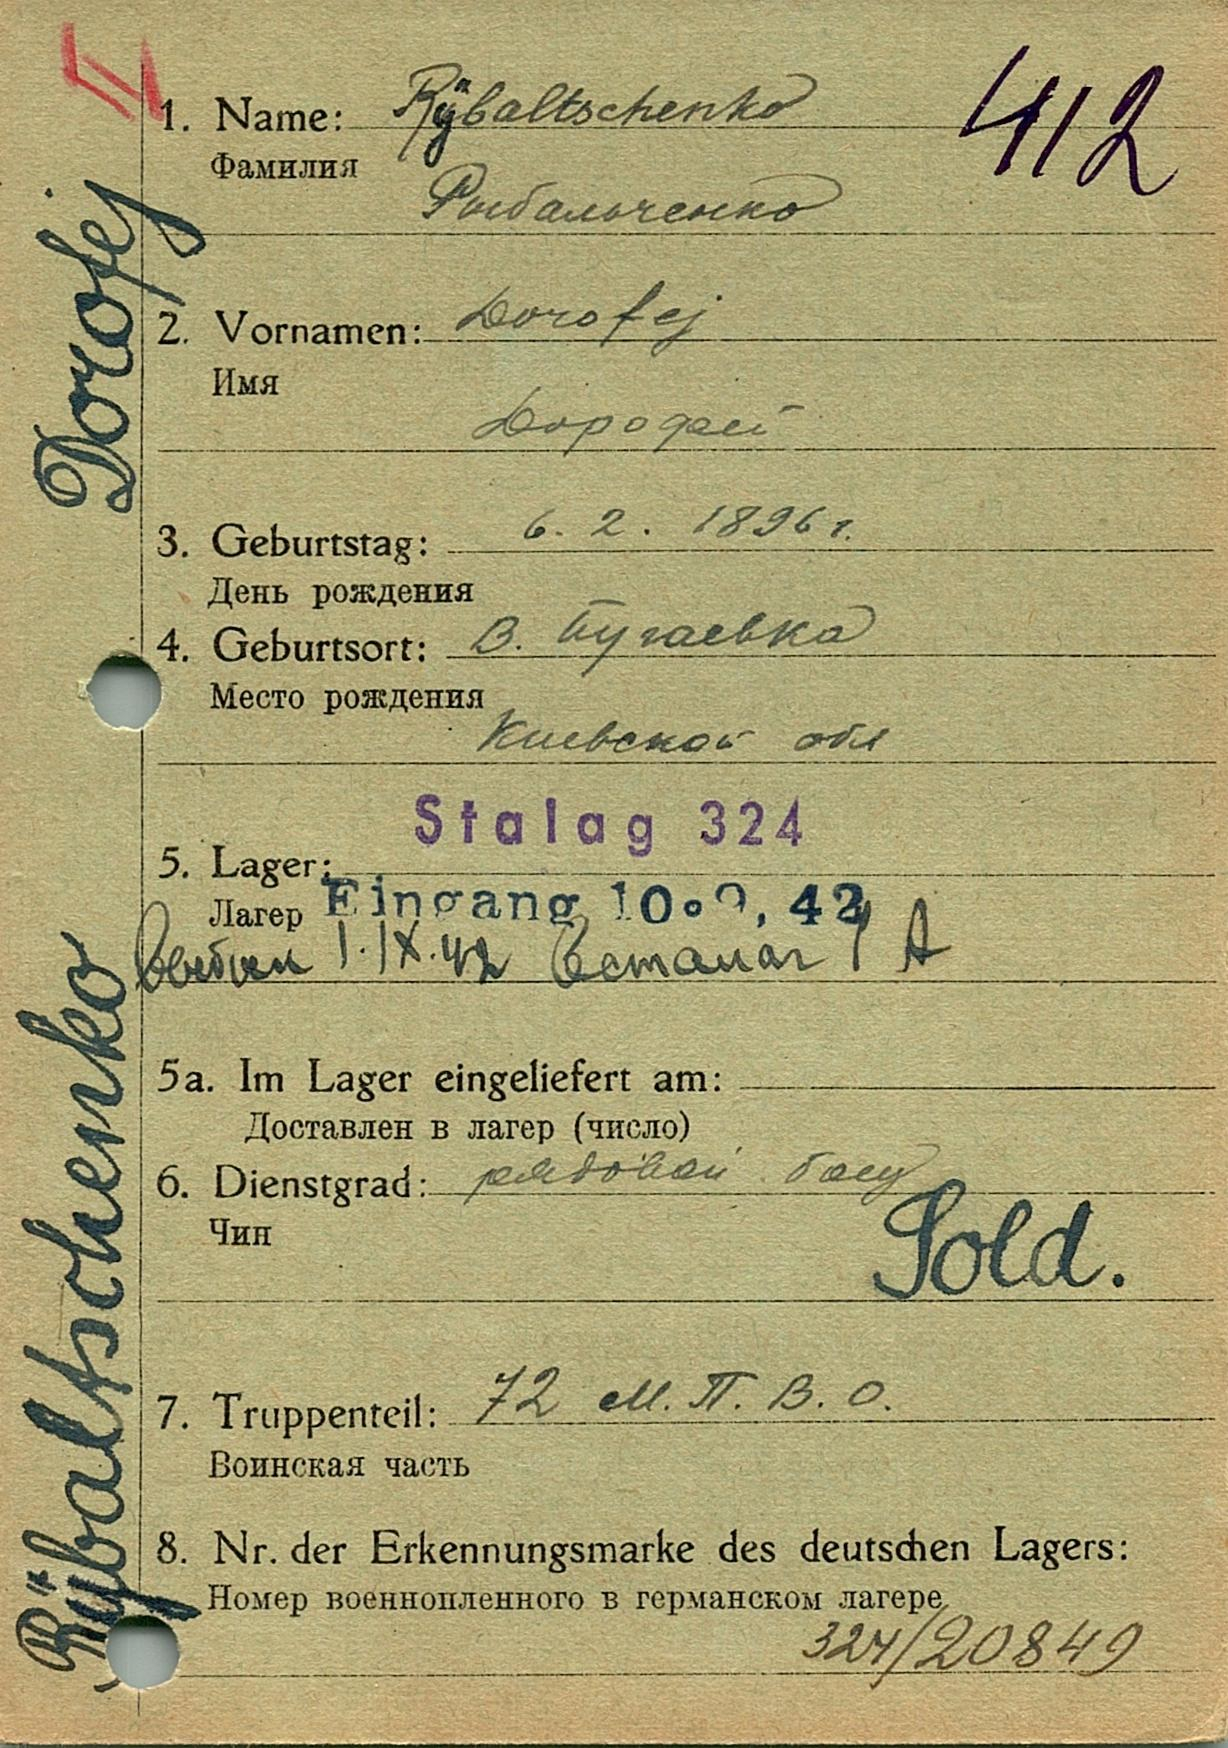 II
412
1. Name: Rÿbaltschenko
Фамилия
Рыбальченко
2. Vornamen: Dorofej
Имя
Дорофей
3. Geburtstag: 6. 2. 1896 г.
День рождения
4. Geburtsort: В. Бугаевка
Место рождения
Киевской обл
Stalag 324
5. Lager:
Лагер Eingang 10. 9. 42
1.IX.42 1 A
5a. Im Lager eingeliefert am:
Доставлен в лагер (число)
6. Dienstgrad: рядовой боец
Чин
Sold.
7. Truppenteil: 72 М.П.В.О.
Воинская часть
8. Nr. der Erkennungsmarke des deutschen Lagers:
Номер военнопленного в германском лагере
324/20849
Rÿbaltschenko Dorofej